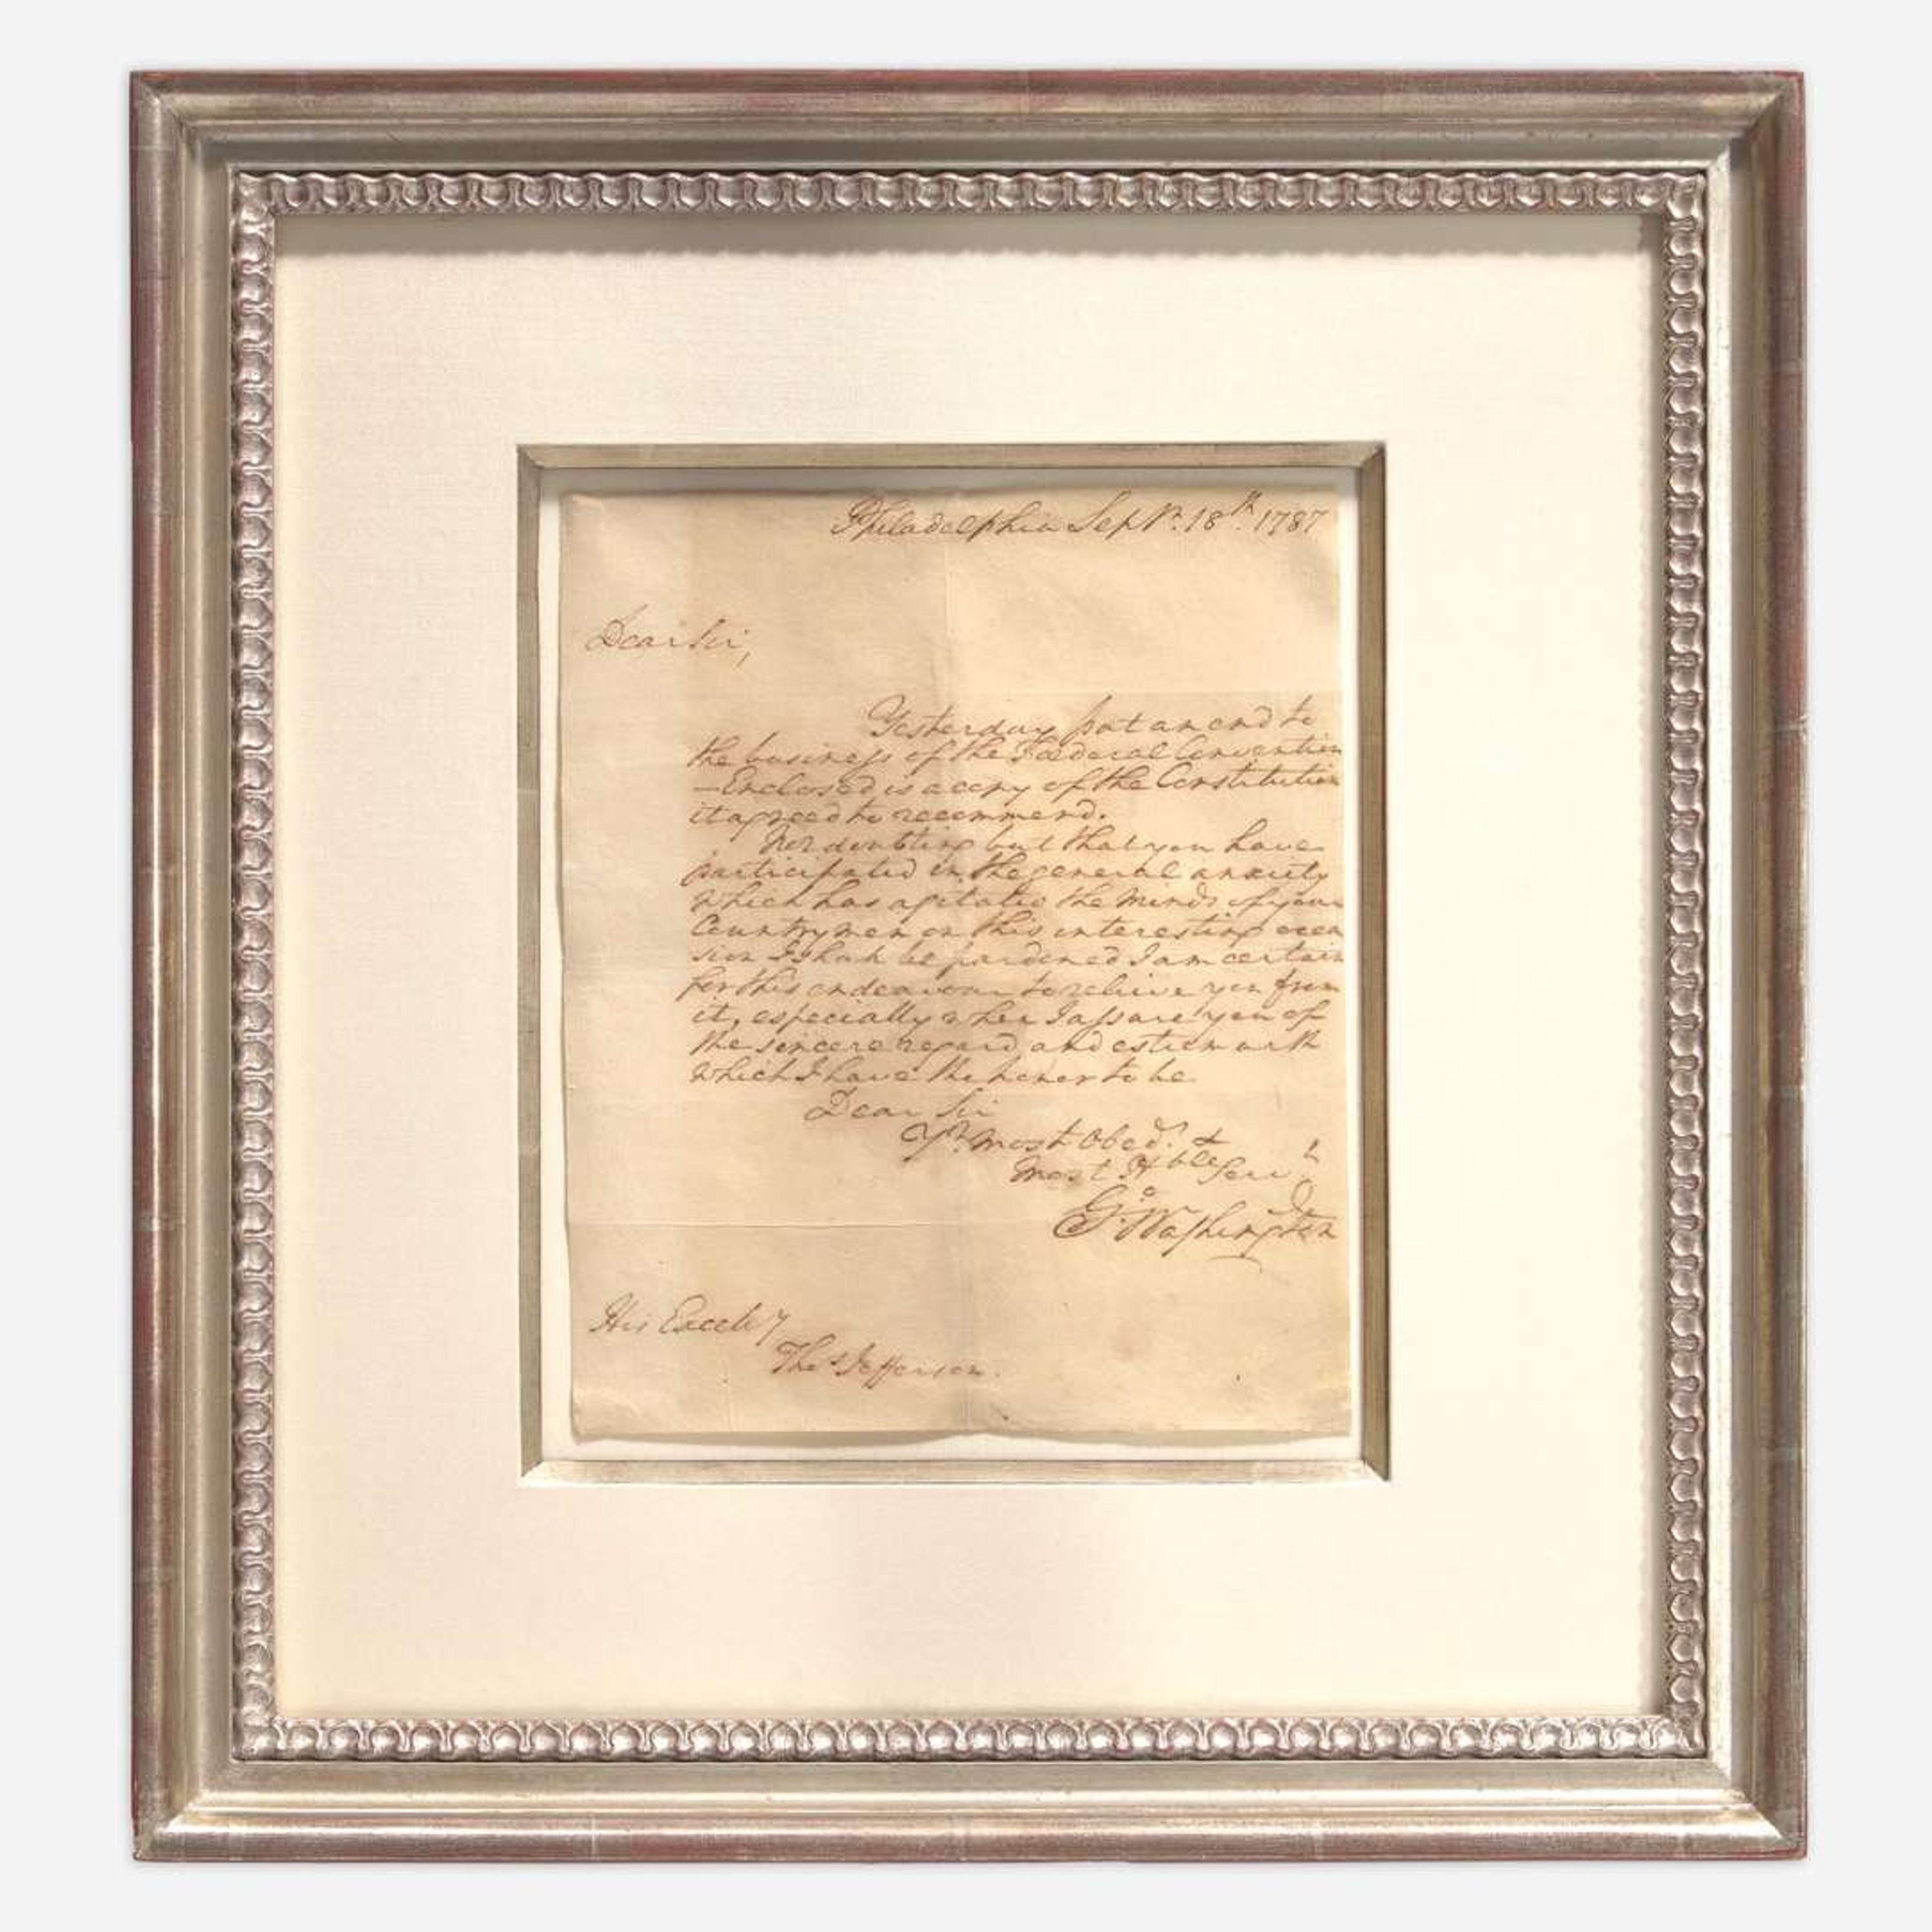 Philadelphia Sepr. 18th. 1787
Dear Sir,
Yesterday put an end to
the business of the Fœderal Convention
—Enclosed is a copy of the Constitution
it agreed to recommend.
Not doubting but that you have
participated in the general anxiety
which has agitated the minds of your
Countrymen on this interesting occa
sion I shall be pardoned I am certain
for this endeavour to relieve you from
it, especially when I assure you of
the sincere regard and esteem with
which I have the honor to be
Dear Sir
Yr. most Obedt. &
most Hble Servt
Go. Washington
His Excelly
Thos Jefferson.